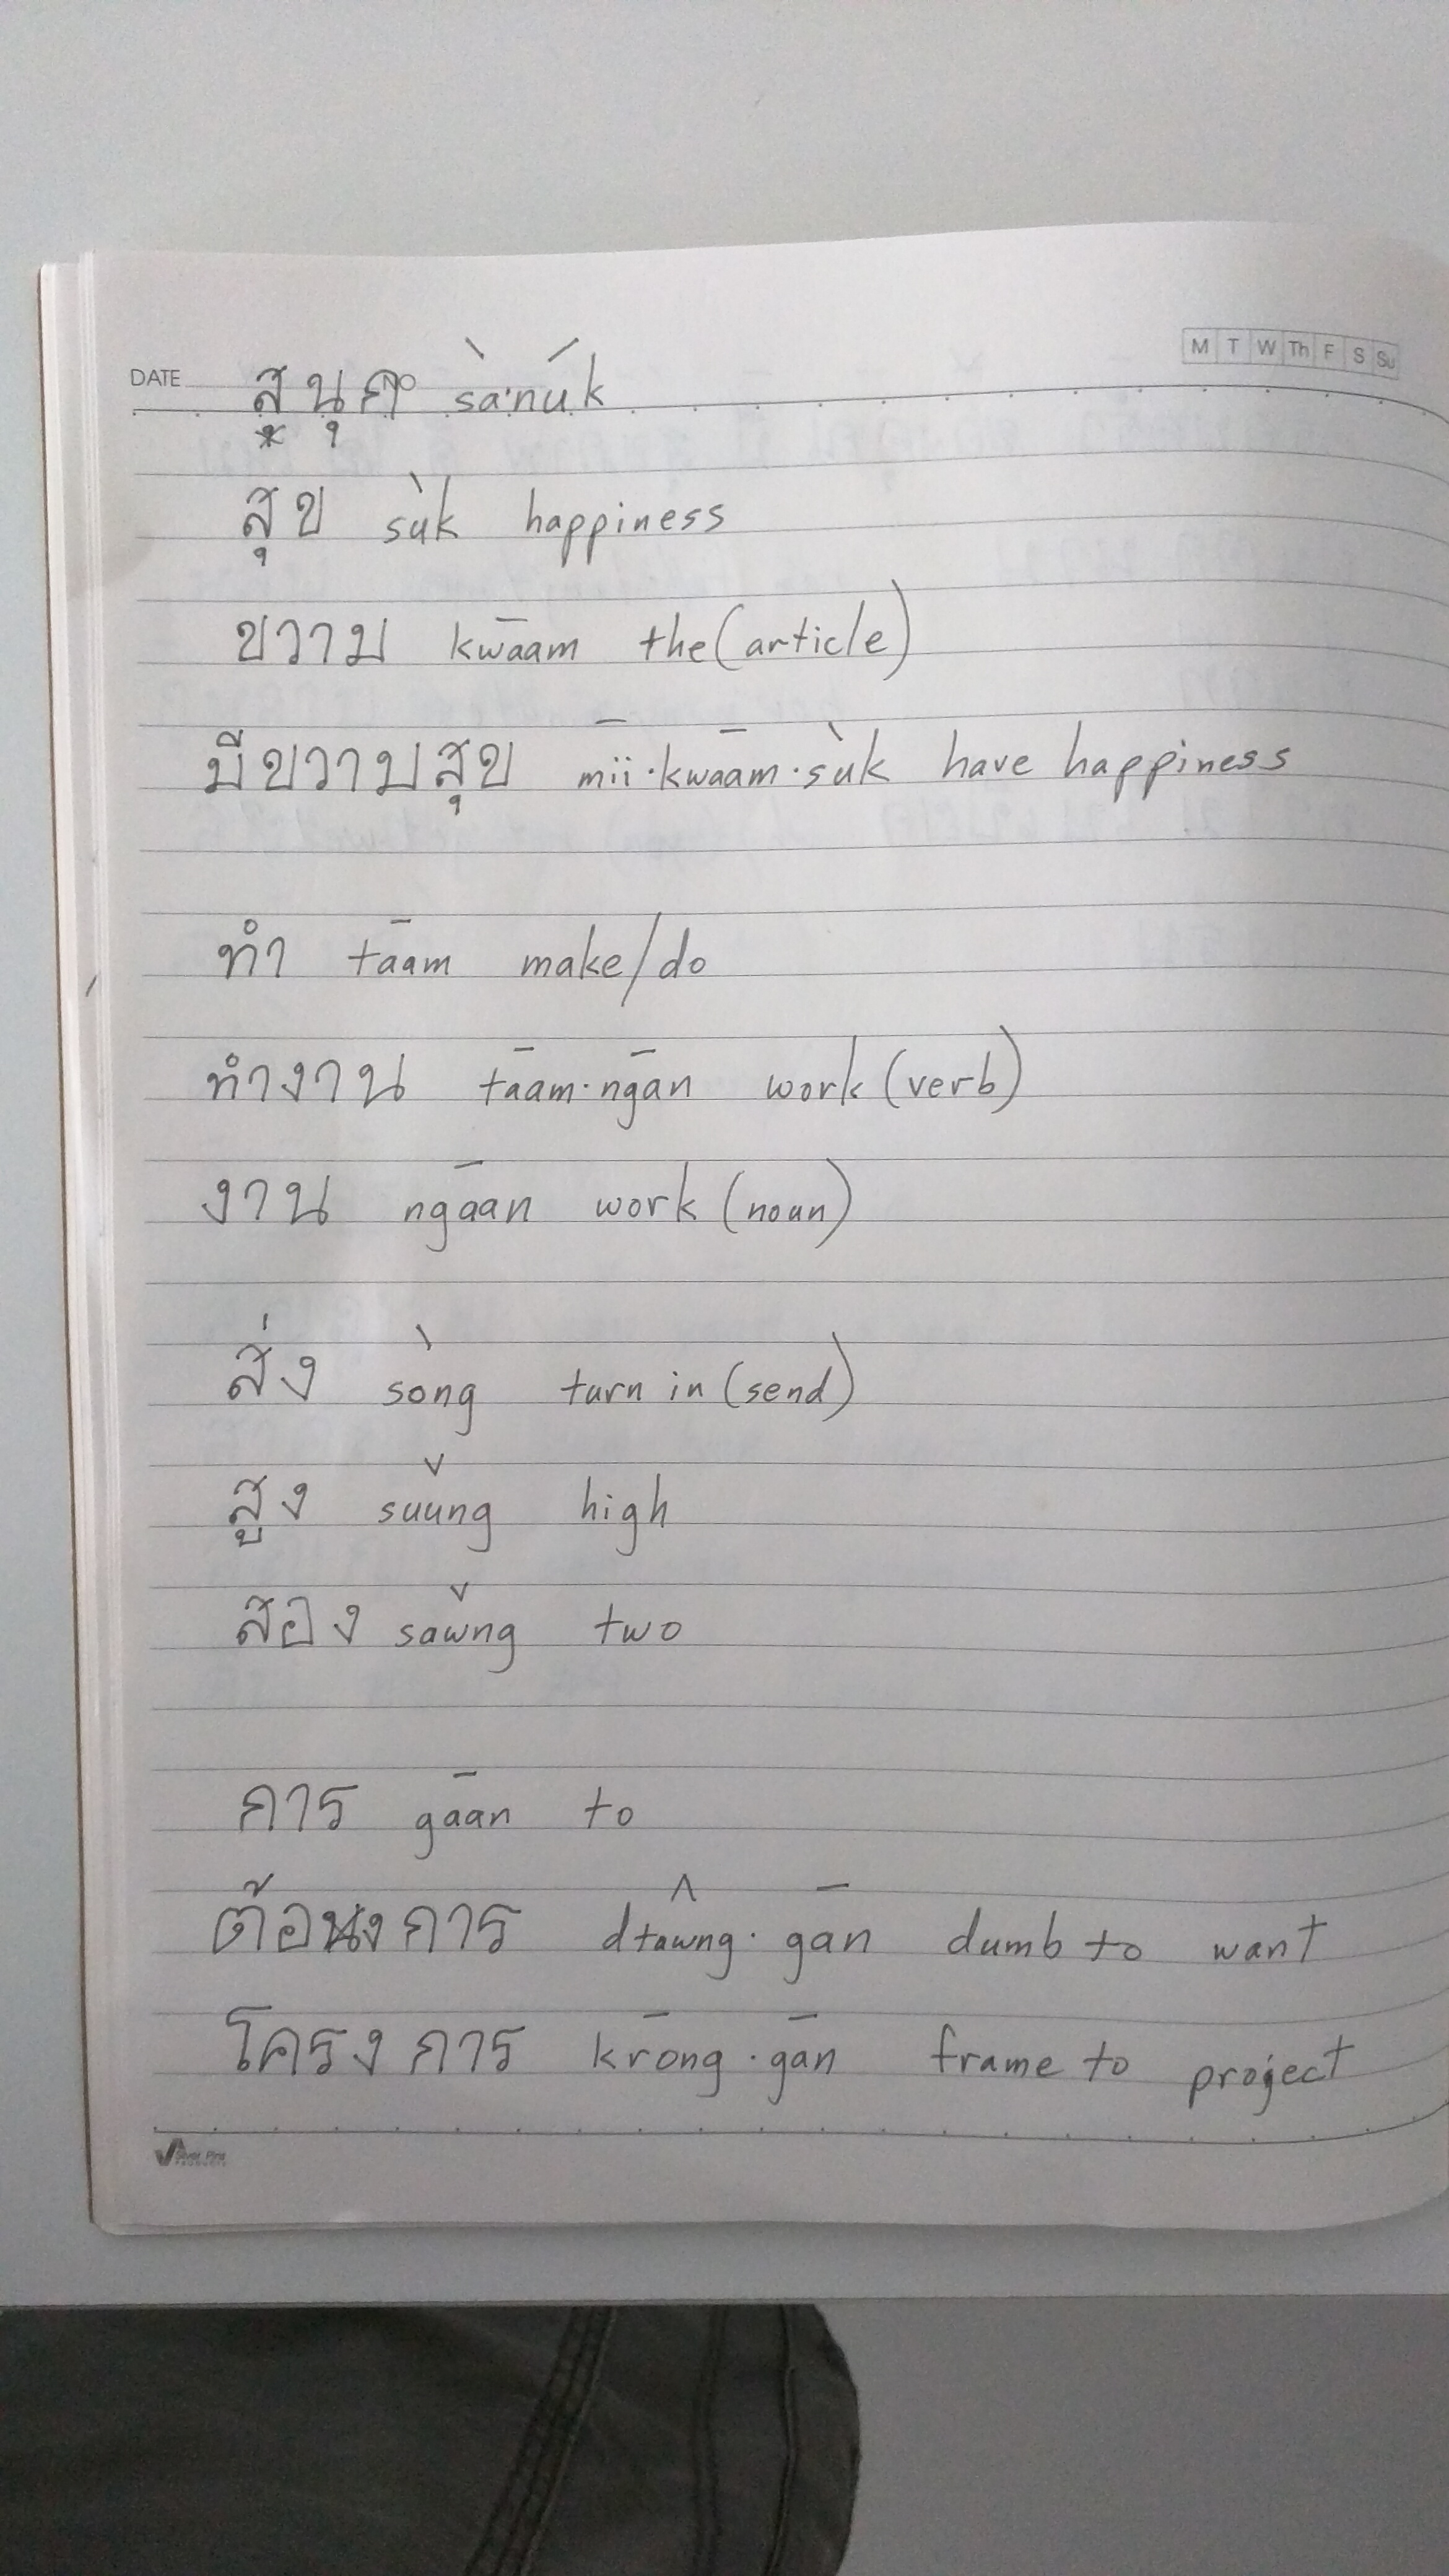 M T W Th F S Su
DATE สุนุก sà·núk
สุข sùk happiness
ขวาม kwāam the (article)
มีขวามสุข mīi·kwāam·sùk have happiness
ทำ tāam make/do
ทำงาน tāam·ngān work (verb)
งาน ngāan work (noun)
ส่ง sòng turn in (send)
สูง sǔung high
สอง sǎwng two
การ gāan to
ต้องการ dtâwng·gān dumb to want
โครงการ krōng·gān frame to project